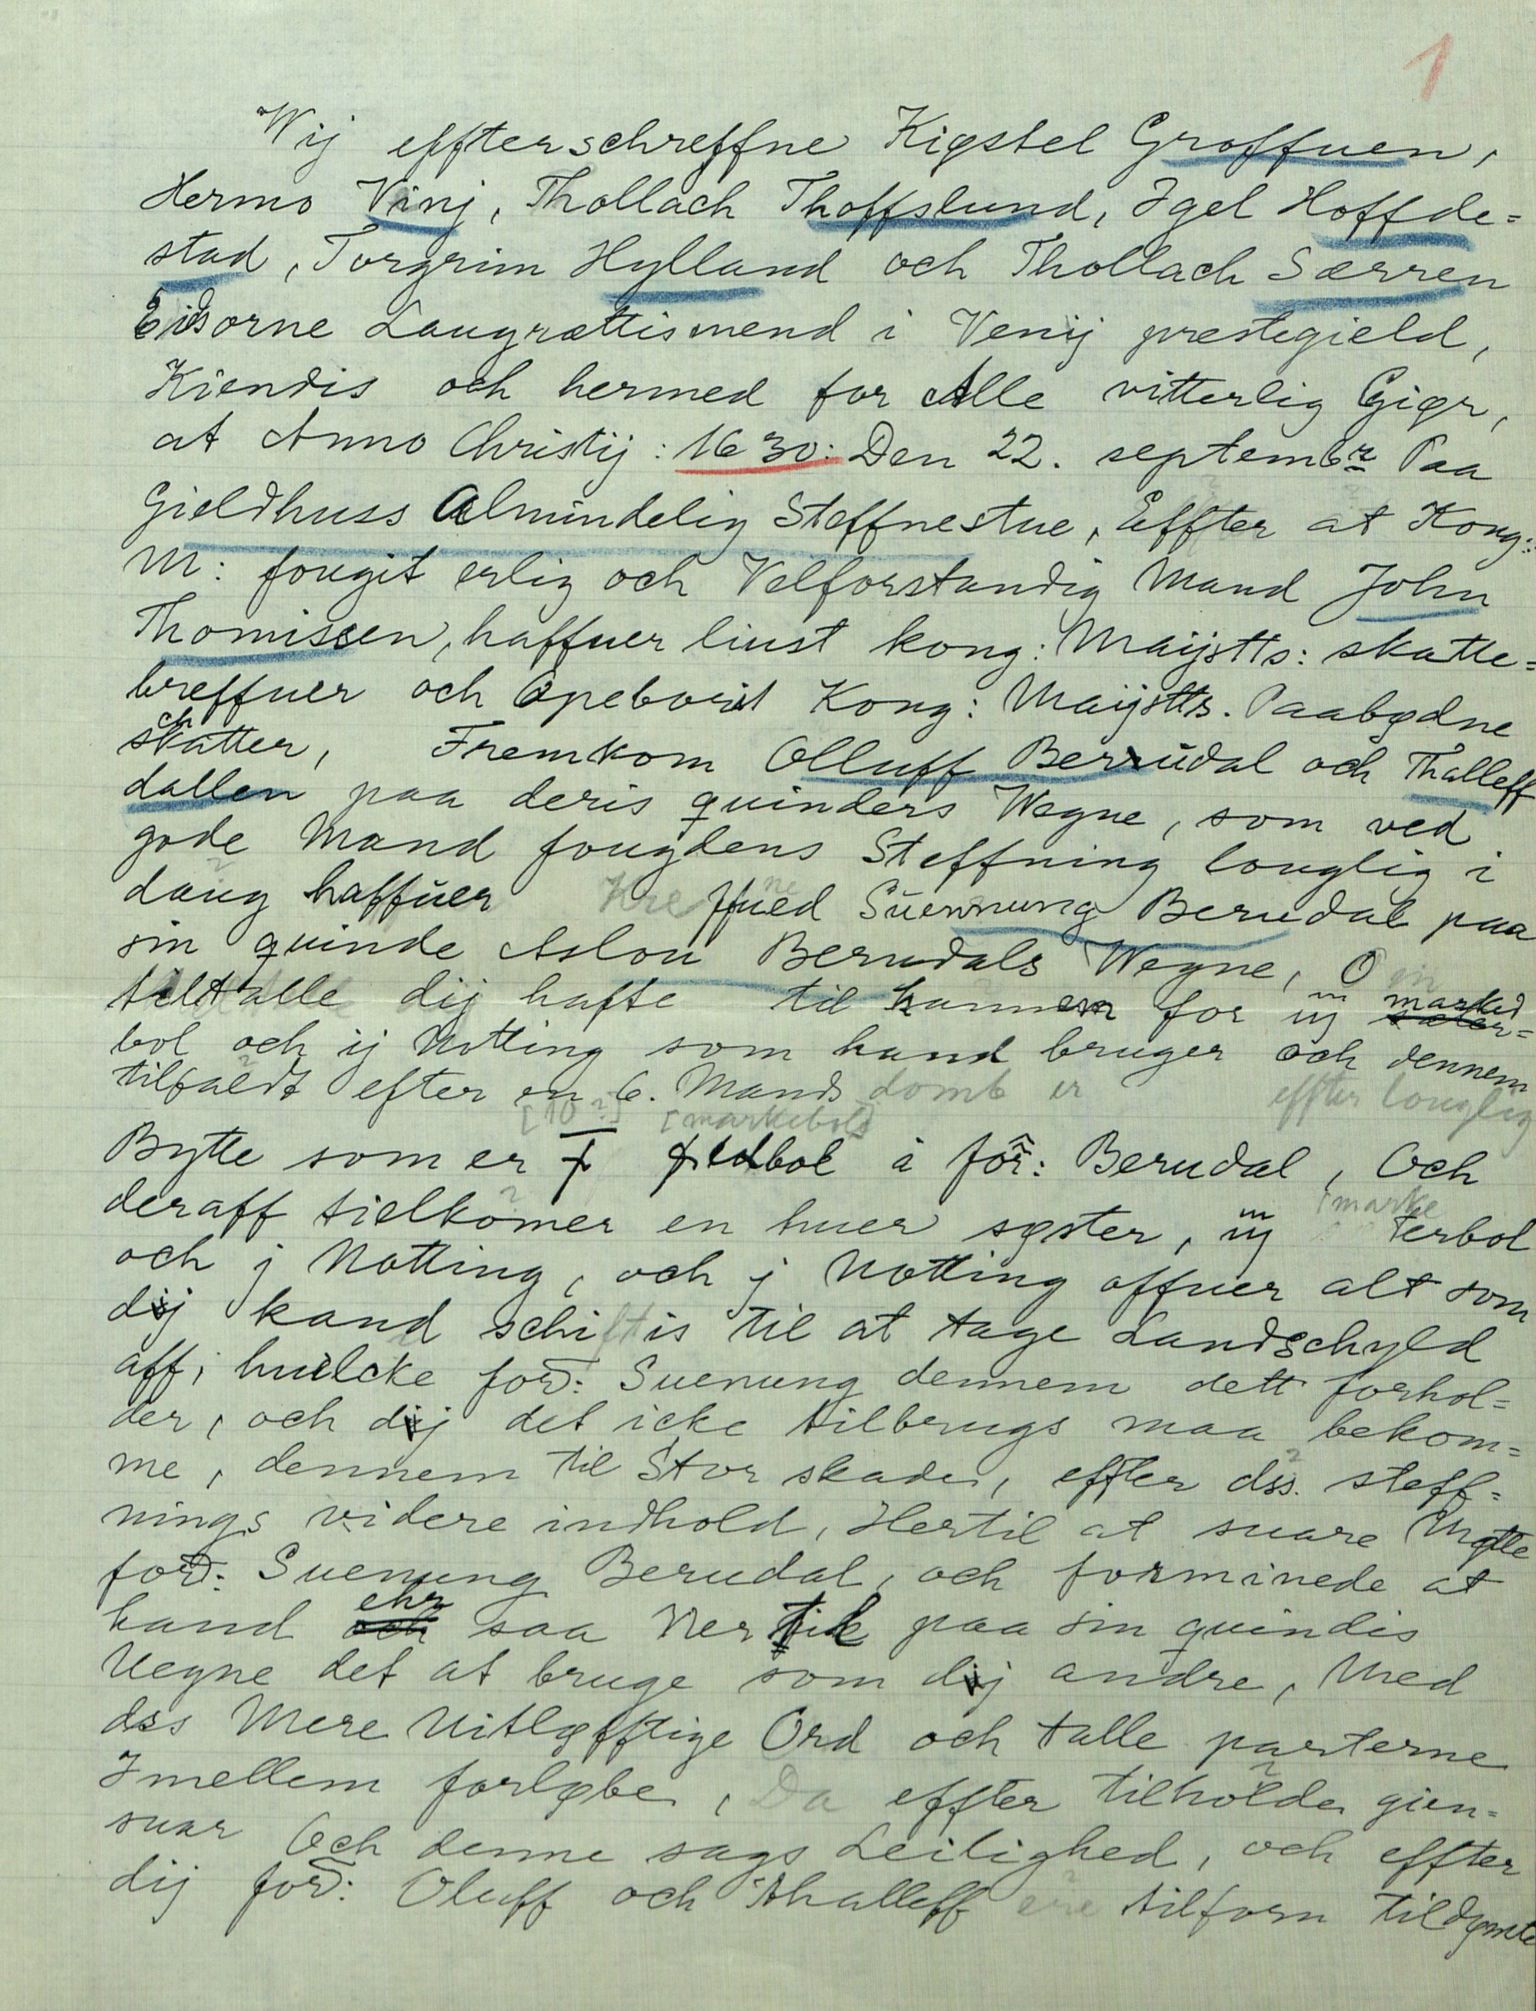 1
Wij effterschreffne Kiøstel Groffuen,
Hermo Vinj, Thollach Thoffslund, Igel Hoffde=
stad, Torgrim Hylland och Thollach Særren
Eidsorne Laugrættismend i Venij prestegield,
Kiendis och hermed for Alle vitterlig Giør,
at Anno Christij: 1630: Den 22. septembr Paa
Gieldhuss Almindelig Steffnestue, Effter at Kong:
M: fougit erlig och Velforstandig Mand John
Thomissen, haffuer liust kong: Maijstts: skatte=
breffuer och Opeborit Kong: Maijstts. Paabødne
skatter, Fremkom Olluff Berrudal och Thalleff
dallen paa deris quinders Wegne, som ved
gode Mand fougdens Steffning louglig i
daug haffuer ffued Suennung Berudal paa
sin quinde Aslou Berudals Wegne, O
tiltalle dij hafte til hannem for iij marked
bol och ij Notting som hand bruger och dennem
tilfaldt efter en 6. Mands domb er effter louglig
[10?] [markebols]
Bytte som er bol i for: Berudal, Och
deraff tielkomer en huer søster, iij [marke terbol
och j Notting, och j Notting offuer alt som
dij kand schiftis til at tage Landschyld
aff, huilcke ford: Suenung dennem dett forhol=
der, och dij det icke tilbrugs maa bekom=
me, dennem til Stor skade, effter dss. steff=
nings videre indhold, Hertil at suare Møtte
ford: Suenung Berudal, och forminede at
hand ehr saa Nertik paa sin quindis
Vegne det at bruge som dij andre, Med
dss Mere Uitløfftige Ord och talle parterne
Imellem forløbe, Da effter tilholde gien=
suar Och denne sags Leilighed, och effter
dij ford: Oluff och Thalleff ere tilforn tildømte